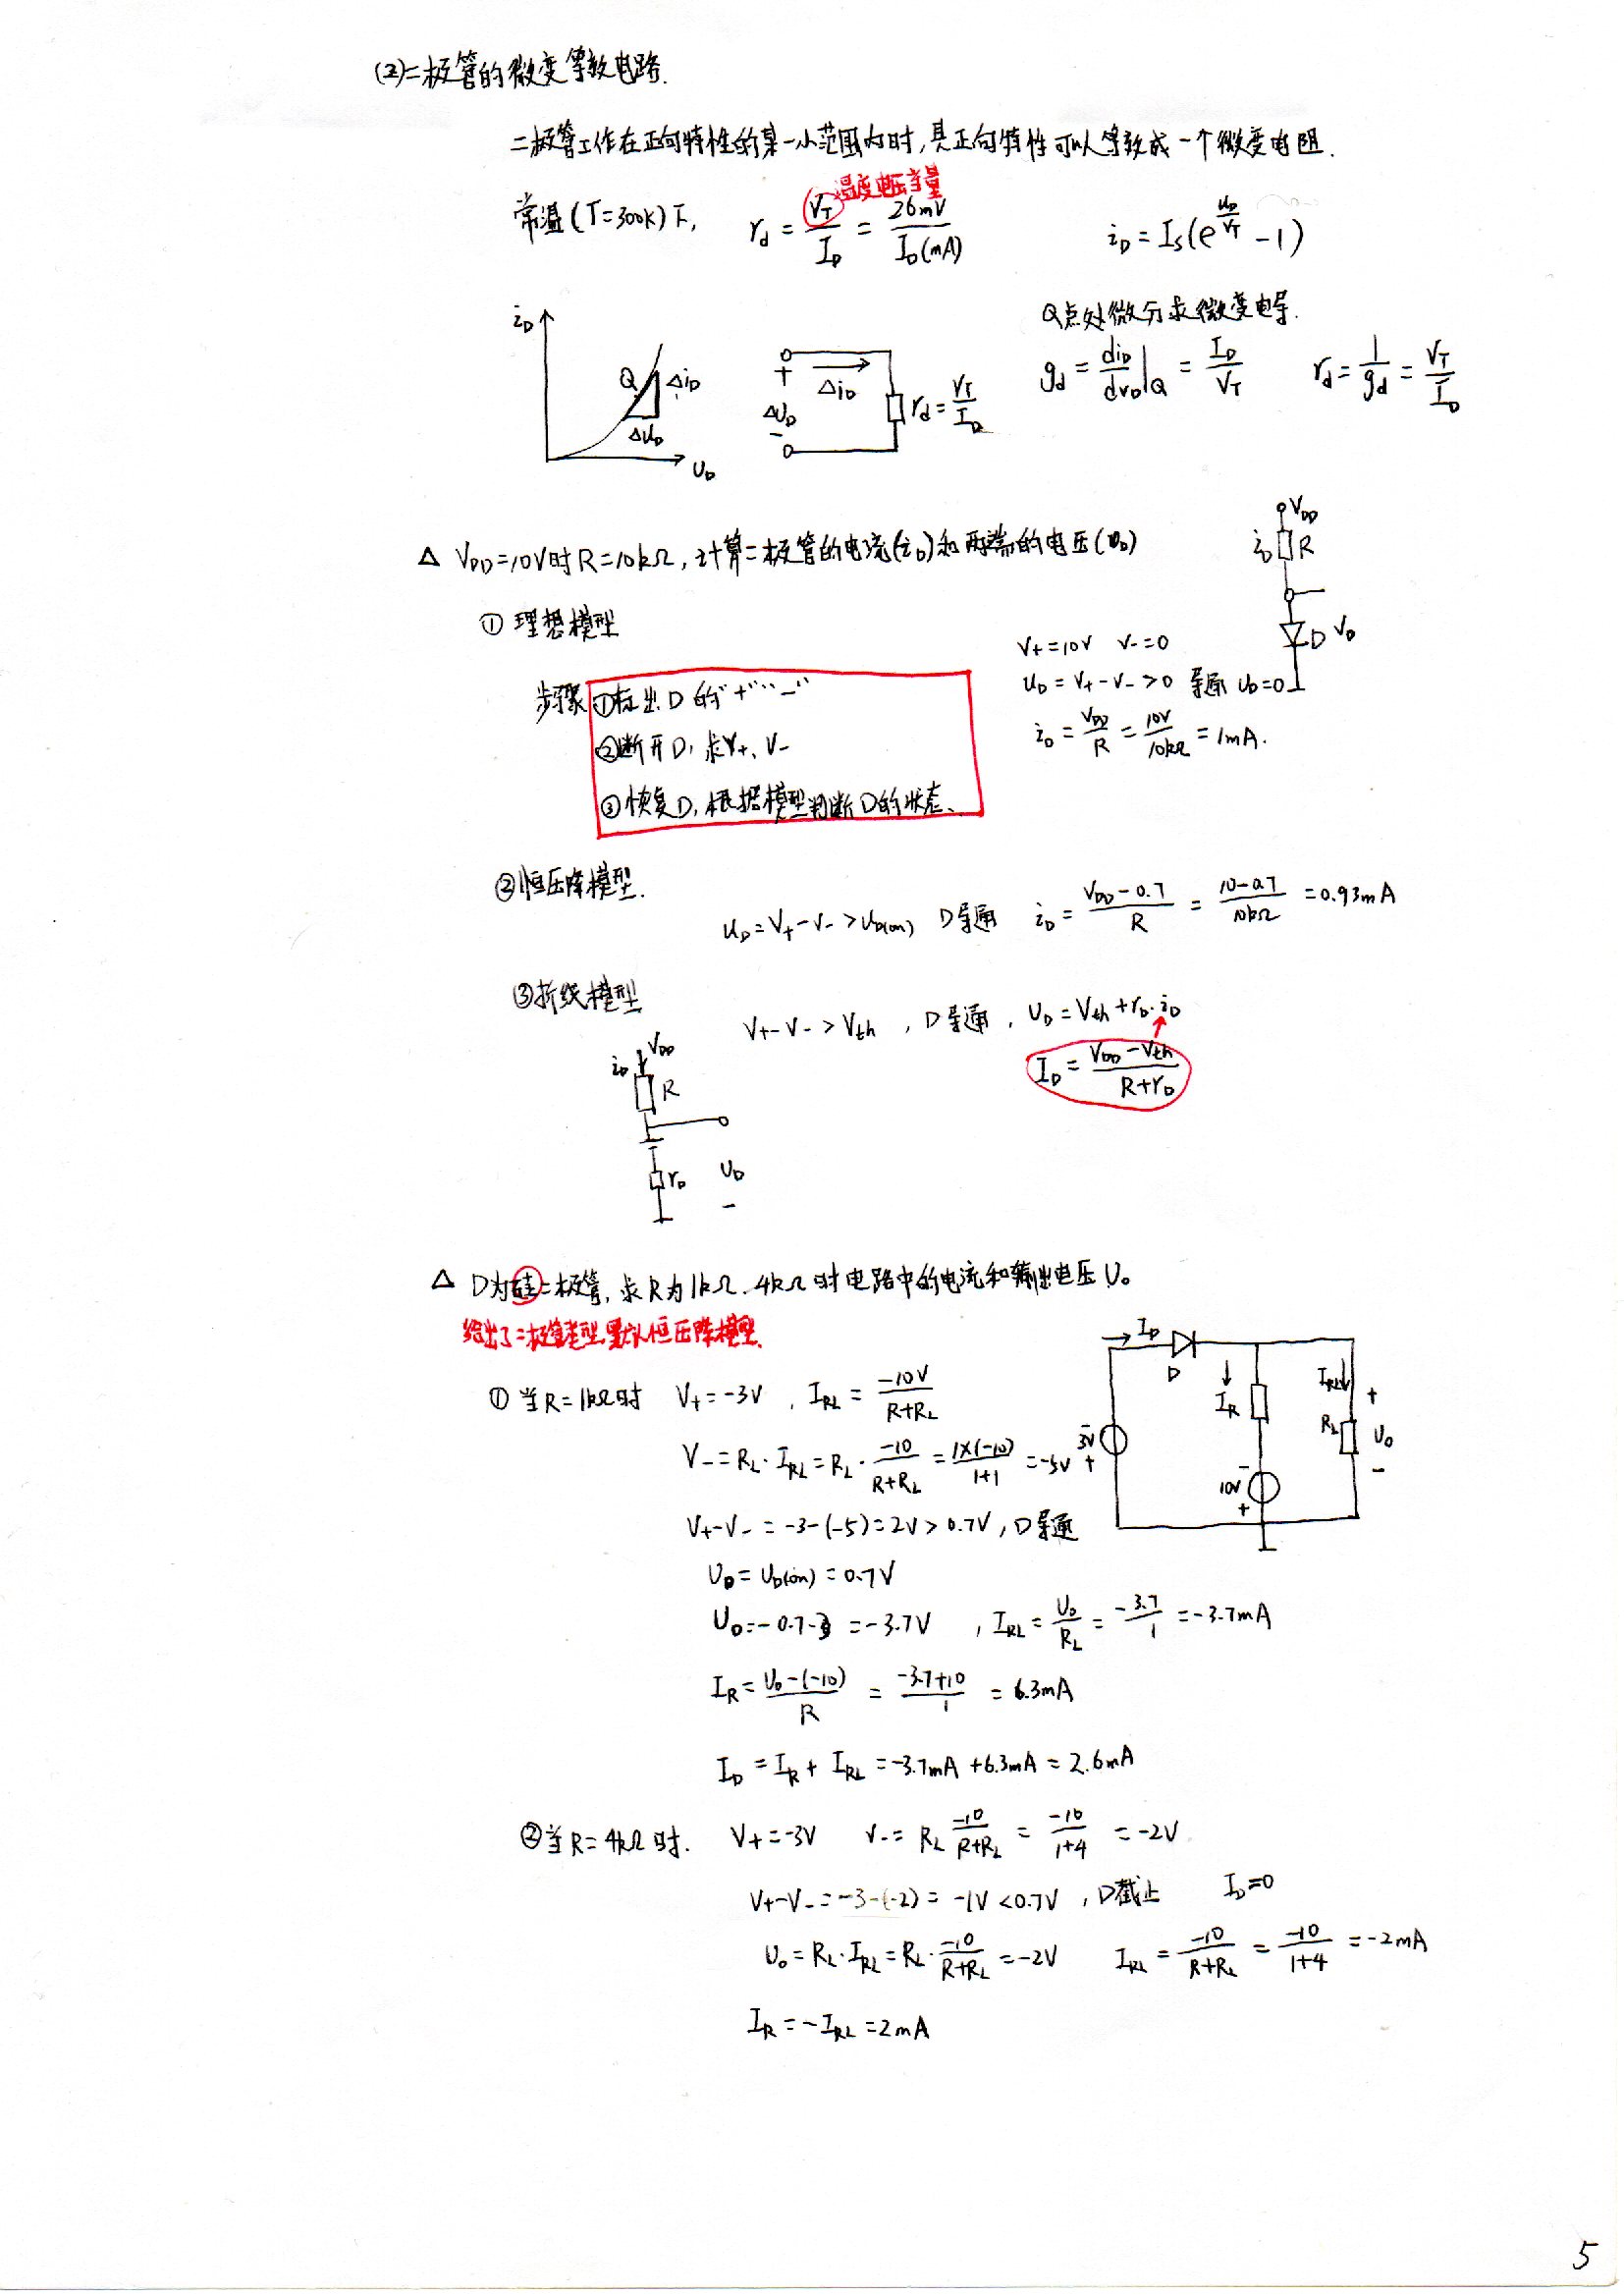 (2)二极管的微变等效电路.
二极管工作在正向特性的某一小范围内时,其正向特性可以等效成一个微变电阻.
温度电压当量
常温(T=300K)下, r_d = V_T/I_D = 26mV/I_D(mA) i_D = I_S(e^{u_D/V_T} -1)
Q点处微分求微变电导.
g_d = di_D/dv_D|_Q = I_D/V_T r_d = 1/g_d = V_T/I_D
i_D Q Δi_D ΔU_D U_D
+ ΔU_D - Δi_D r_d = V_T/I_D
△ V_DD=10V时R=10kΩ,计算二极管的电流(i_D)和两端的电压(v_D)
V_DD i_D R D V_D
① 理想模型
V+=10V V-=0
u_D = V+ - V- >0 导通 U_D=0
i_D = V_DD/R = 10V/10kΩ = 1mA.
步骤 ①标出D的"+""-"
②断开D,求V+、V-
③恢复D,根据模型判断D的状态、
②恒压降模型.
u_D=V+-V->U_D(on) D导通 i_D = (V_DD-0.7)/R = (10-0.7)/10kΩ =0.93mA
③折线模型
V+-V- >V_th ,D导通, U_D=V_th+r_D·i_D
I_D = (V_DD-V_th)/(R+r_D)
i_D V_DD R r_D U_D -
△ D为硅二极管,求R为1kΩ、4kΩ时电路中的电流和输出电压U_o
给出了二极管类型,默认恒压降模型.
I_D D I_R I_RL + R_L U_o - - 3V + - 10V +
① 当R=1kΩ时 V+=-3V , I_RL = -10V/(R+R_L)
V-=R_L·I_RL=R_L·-10/(R+R_L) = 1×(-10)/(1+1) =-5V
V+-V- =-3-(-5)=2V>0.7V,D导通
U_D=U_D(on)=0.7V
U_o=-0.7-3 =-3.7V ,I_RL=U_o/R_L=-3.7/1=-3.7mA
I_R=(U_o-(-10))/R = (-3.7+10)/1 =6.3mA
I_D =I_R+ I_RL =-3.7mA+6.3mA=2.6mA
②当R=4kΩ时. V+=-3V V-= R_L -10/(R+R_L) = -10/(1+4) =-2V
V+-V-=-3-(-2)= -1V<0.7V ,D截止 I_D=0
U_o=R_L·I_RL=R_L·-10/(R+R_L)=-2V I_RL = -10/(R+R_L) = -10/(1+4) =-2mA
I_R=-I_RL=2mA
5